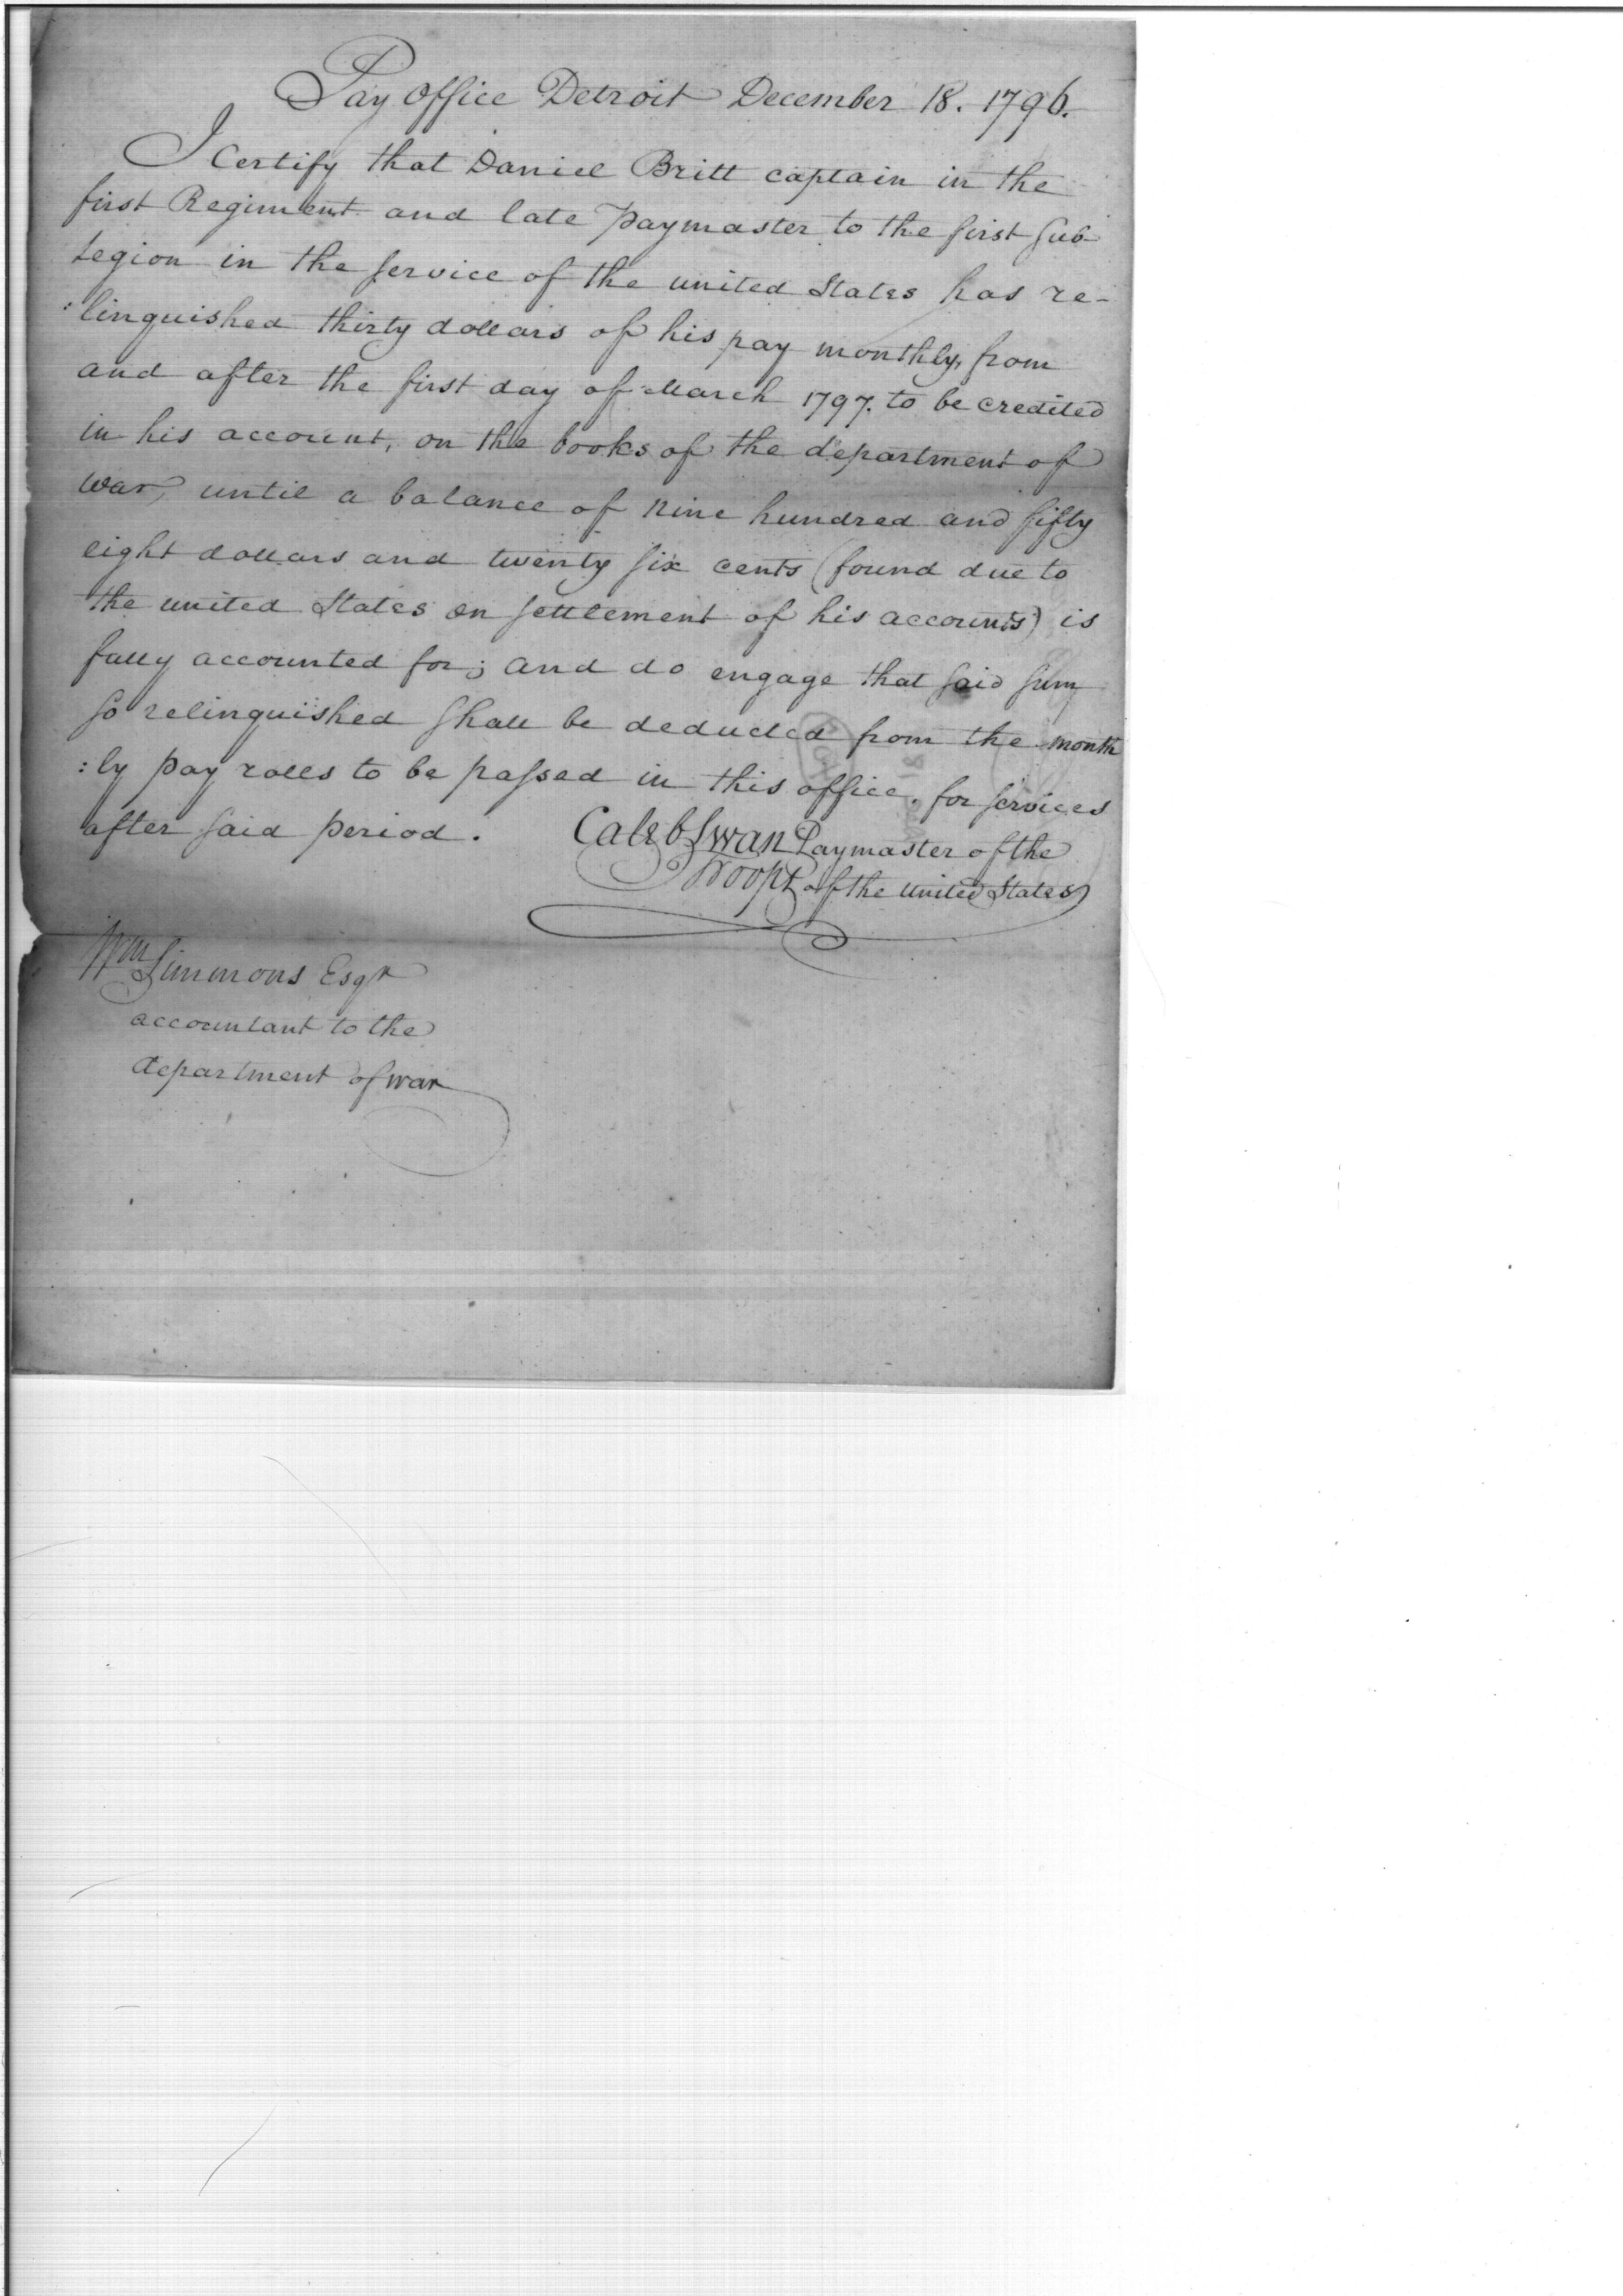 Pay Office Detroit December 18. 1796.
I Certify that Daniel Britt captain in the
first Regiment and late paymaster to the first sub-
Legion in the service of the united States has re-
:linquished thirty dollars of his pay monthly, from
and after the first day of March 1797. to be credited
in his account, on the books of the department of
war, until a balance of nine hundred and fifty
eight dollars and twenty six cents (found due to
the united States on settlement of his accounts) is
fully accounted for; and do engage that said sum
so relinquished shall be deducted from the month
:ly pay rolls to be passed in this office, for services
after said period. Caleb Swan Paymaster of the
Troops of the united States
Wm Simmons Esqr
accountant to the
department of war